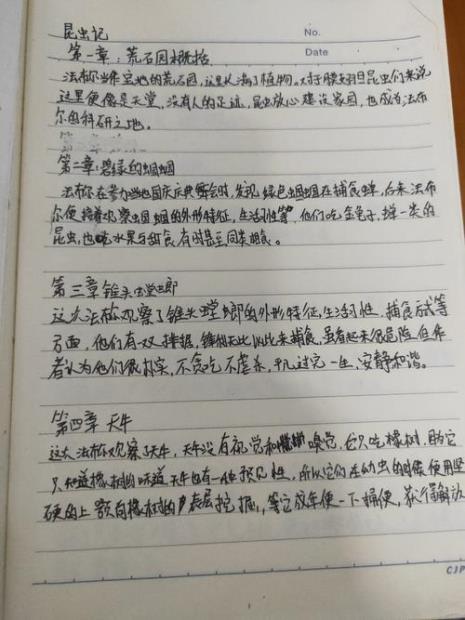 昆虫记
No.
第一章:荒石园概括
Date
法布尔当作宝地的荒石园,这里长满了植物。对于膜翅目昆虫们来说
这里便像是天堂,没有人的足迹,昆虫放心建设家园,也成为法布
尔的科研之地。
第二章:碧绿的蝈蝈
法布尔在参加当地国庆庆典舞会时,发现绿色蝈蝈在捕食蝉,后来法布
尔便接着观察蝈蝈的外形特征,生活习性等,他们吃金龟子,蝉一类的
昆虫,也吃水果与甜食,有时甚至同类相食。
第三章锥头螳螂
这次法布尔观察了锥头螳螂的外形特征,生活习性,捕食方式等
方面,他们有双捕据,锋利无比以此来捕食,虽看起来很危险但作
者认为他们很朴实,不贪吃不虐杀,平凡过完一生,安静和谐。
第四章 天牛
这次法布尔观察了天牛,天牛没有视觉和嗅觉,它只吃橡树,因为它
只知道橡树的味道,天牛也有一种预见性,所以它们在幼虫的时候便用坚
硬的上颚向橡树的表层挖掘,等它成年便一下捅便,获得解放
CJP